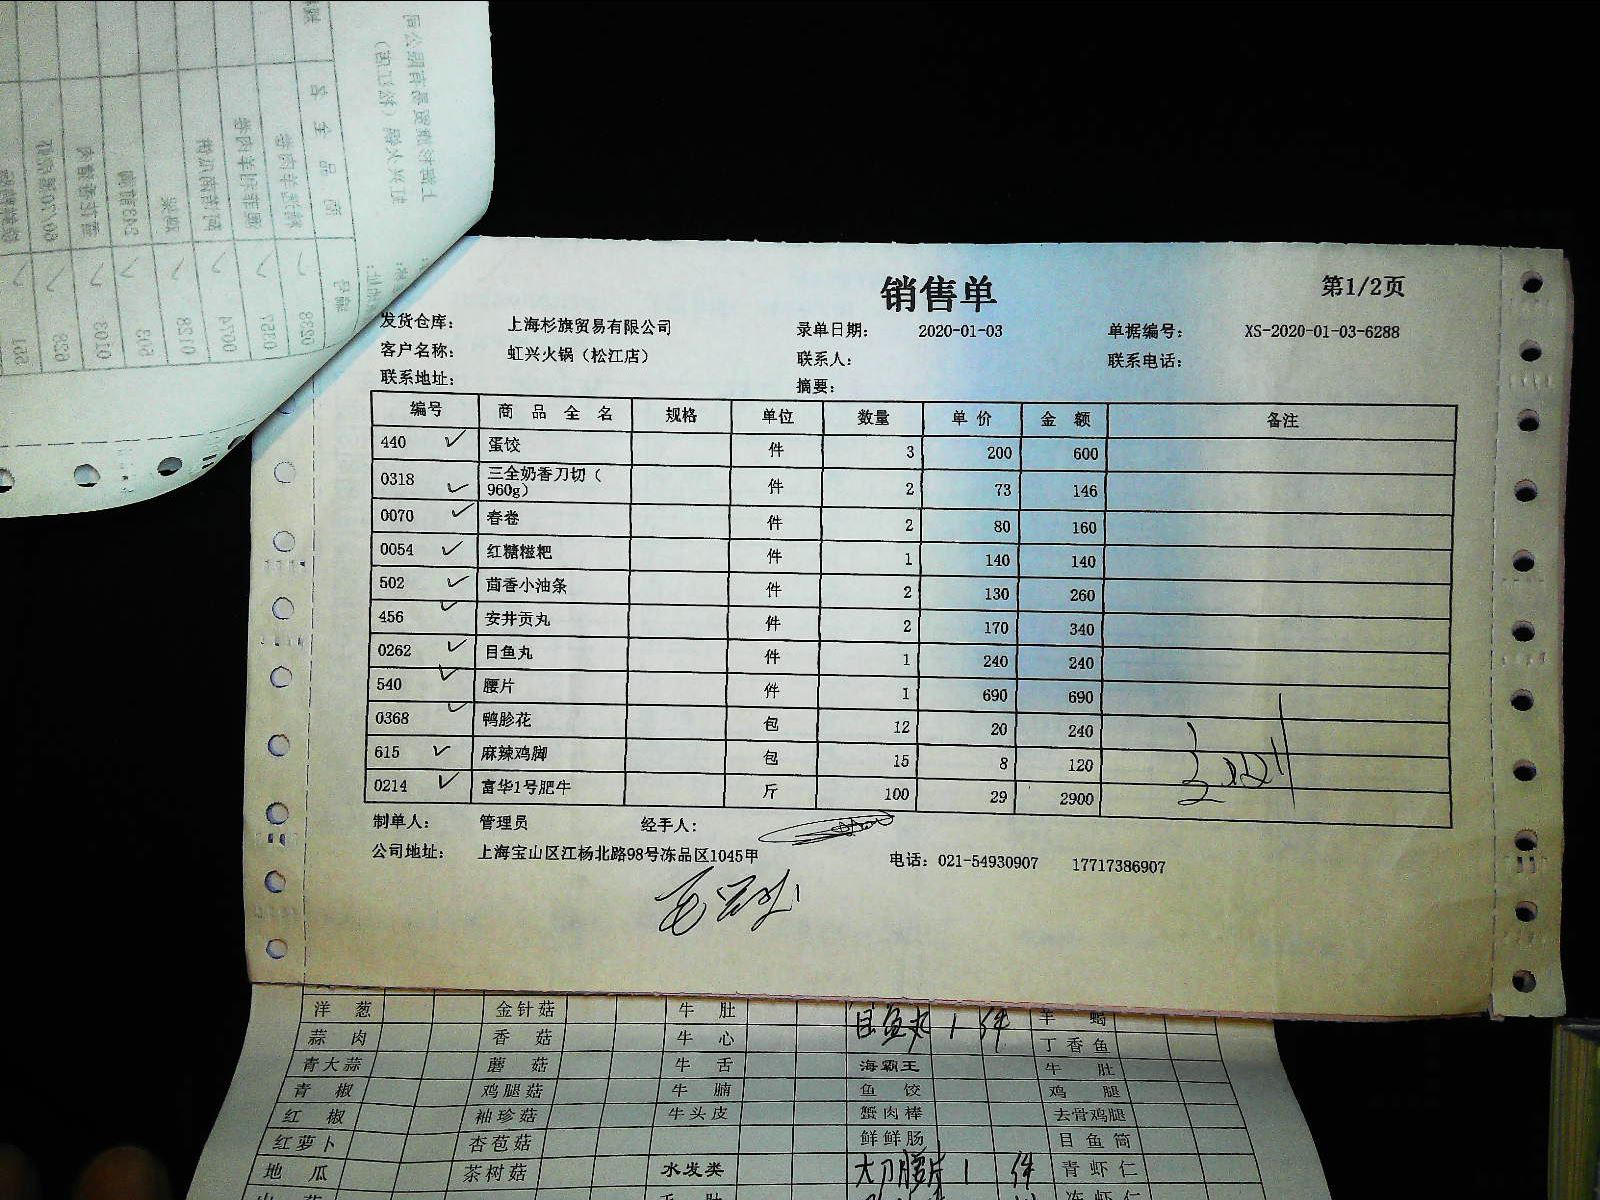 销售单
第1/2页
发货仓库： 上海杉旗贸易有限公司 录单日期： 2020-01-03 单据编号： XS-2020-01-03-6288
客户名称： 虹兴火锅（松江店） 联系人： 联系电话：
联系地址： 摘要：
编号 商品全名 规格 单位 数量 单价 金额 备注
440 蛋饺 件 3 200 600
0318 三全奶香刀切（960g） 件 2 73 146
0070 春卷 件 2 80 160
0054 红糖糍粑 件 1 140 140
502 茴香小油条 件 2 130 260
456 安井贡丸 件 2 170 340
0262 目鱼丸 件 1 240 240
540 腰片 件 1 690 690
0368 鸭胗花 包 12 20 240
615 麻辣鸡脚 包 15 8 120
0214 富华1号肥牛 斤 100 29 2900
制单人： 管理员 经手人：
公司地址： 上海宝山区江杨北路98号冻品区1045甲 电话：021-54930907 17717386907
洋葱 金针菇 牛肚 目鱼丸 1 件 羊蝎
蒜肉 香菇 牛心 丁香鱼
青大蒜 蘑菇 牛舌 海霸王 牛肚
青椒 鸡腿菇 牛腩 鱼饺 鸡腿
红椒 袖珍菇 牛头皮 蟹肉棒 去骨鸡腿
红萝卜 杏苞菇 鲜鲜肠 目鱼筒
地瓜 茶树菇 水发类 大刀腰片 1 件 青虾仁